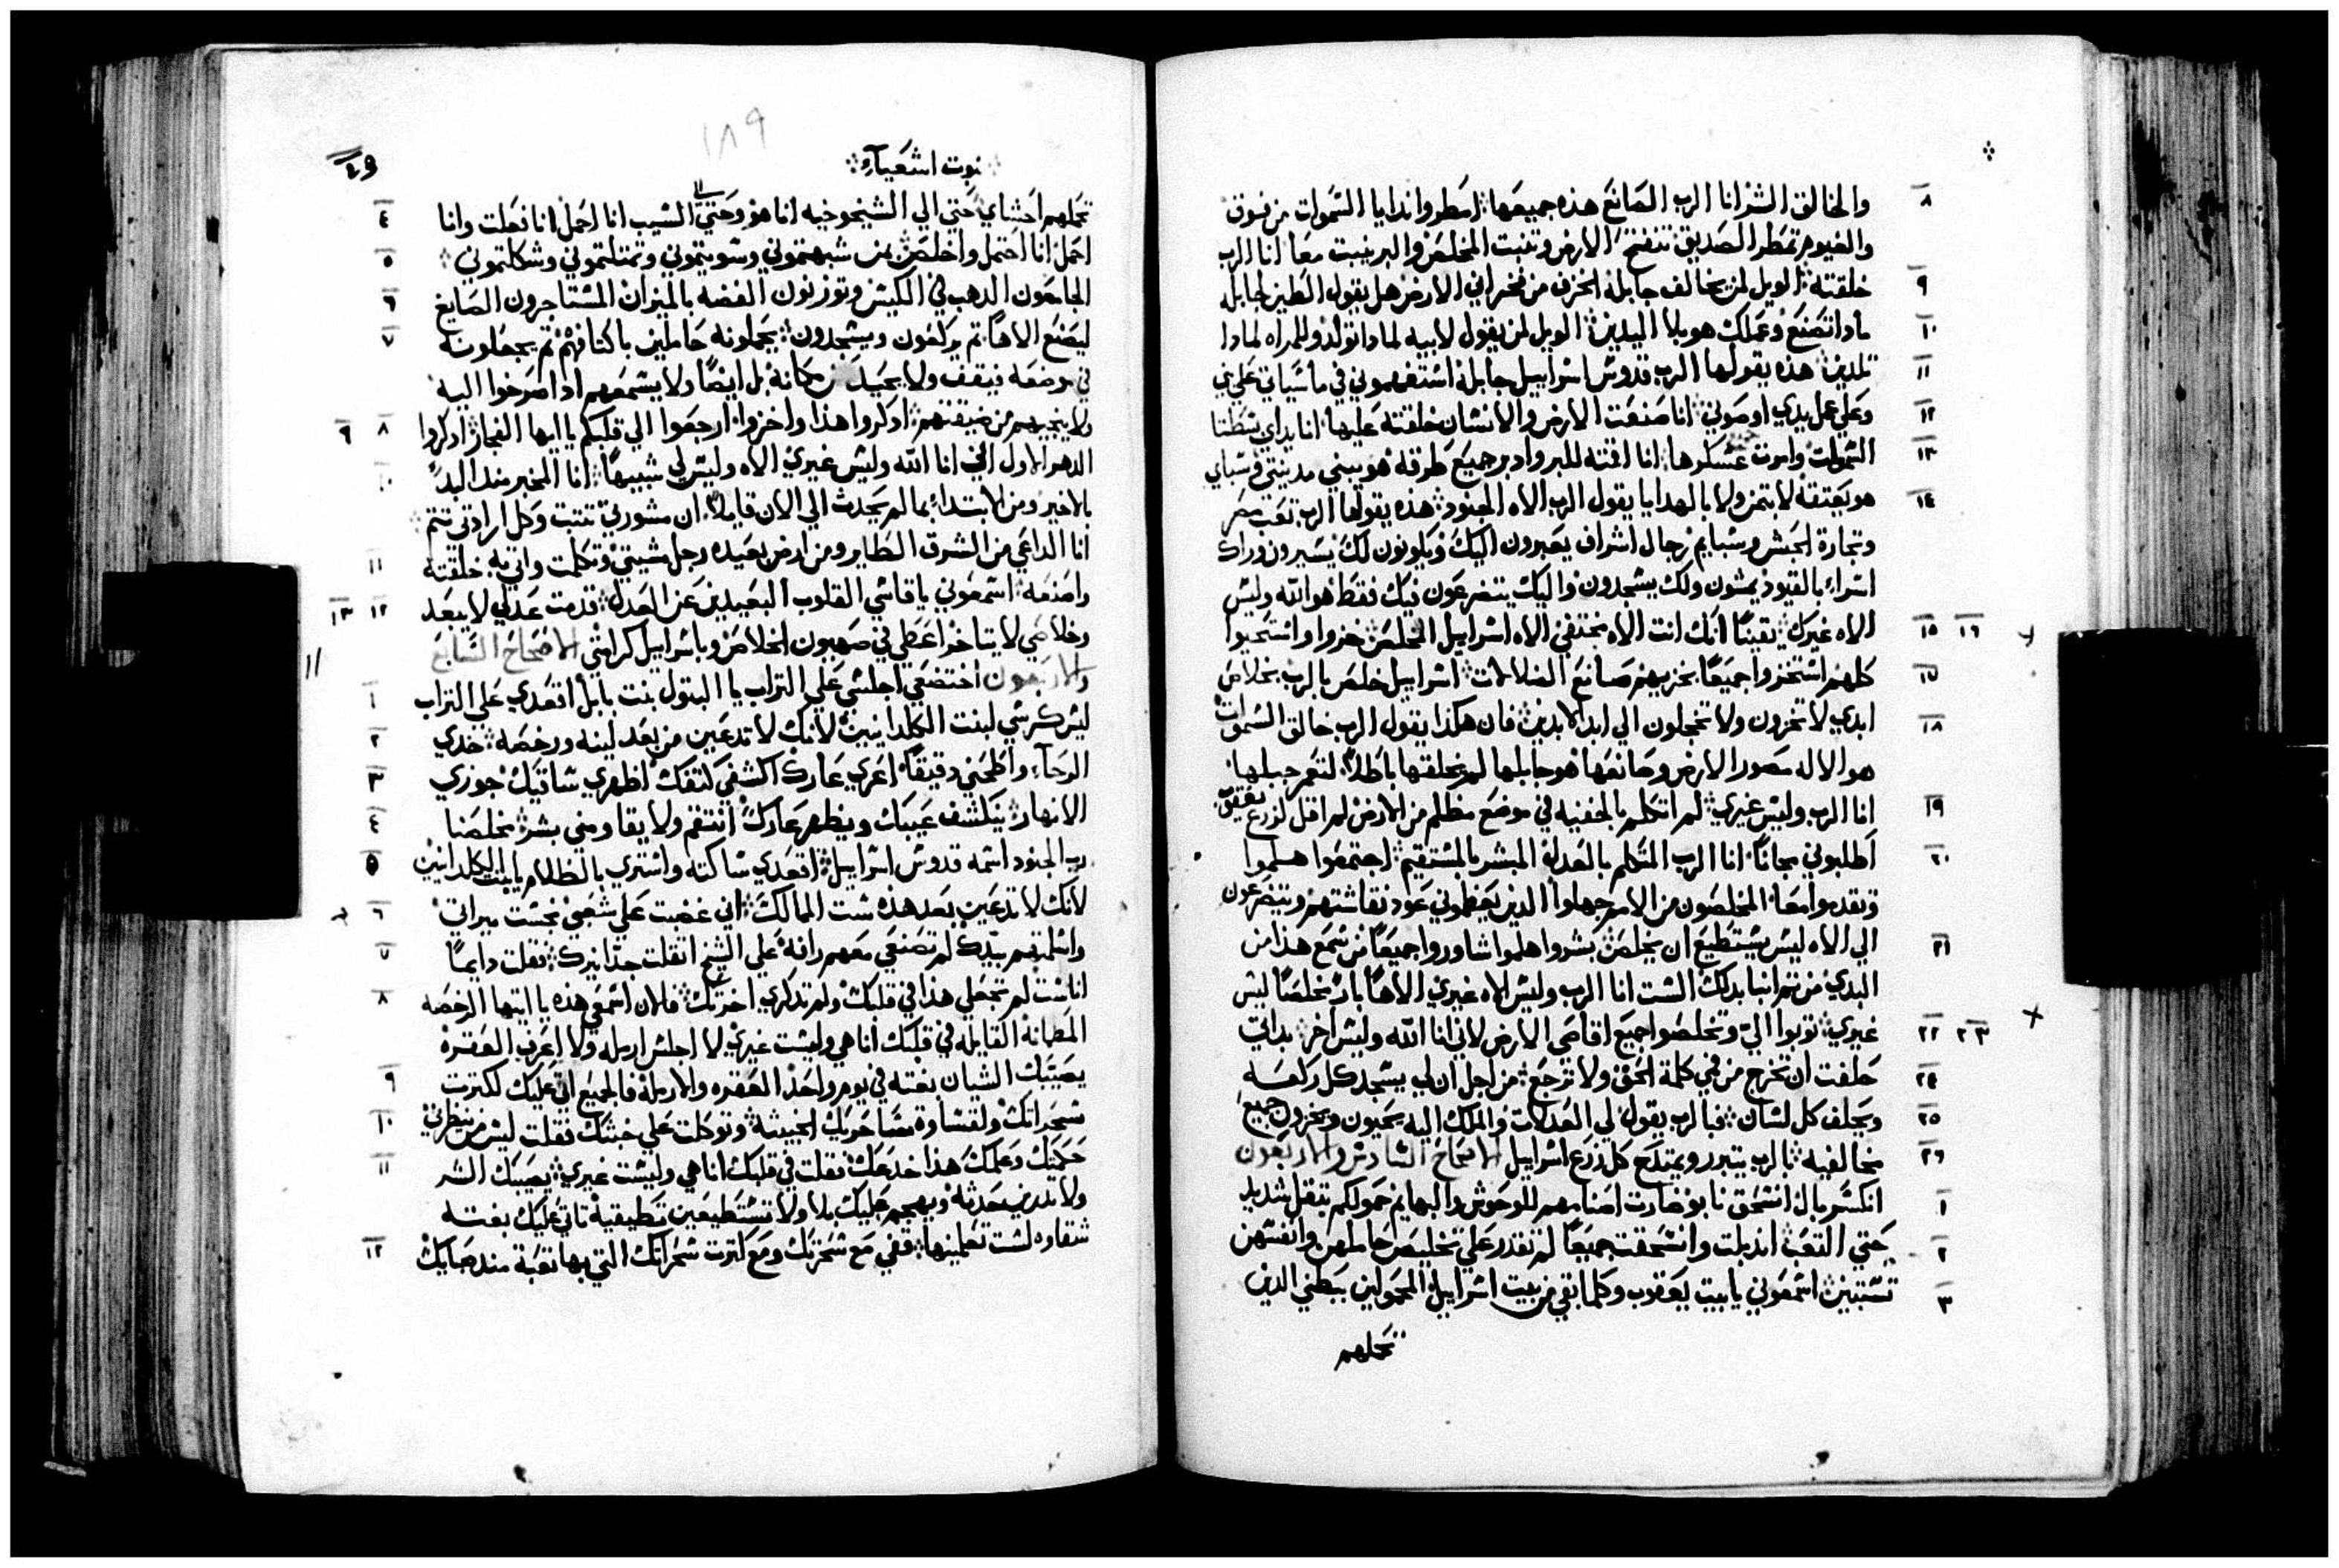 والخالق الشر انا الرب الصانع هذه جميعها امطروا ندايا السموات من فوق
والغيوم تمطر الصديق تنفتح الارض وتنبت المخلص والبر ينبت معا انا الرب
خلقته الويل لمن يخالف جابله الخزف من فخراني الارض هل يقول الطين لجابله
ماداتصنع وعملك هو بلا اليدين الويل لمن يقول لابيه لماداتولد وللمراه لمادا
تلدين هذه يقولها الرب قدوس اسراييل جابله استفهموني في ماسياتي علي بني
وعلي عمل يدي اوصوني انا صنعت الارض والانسان خلقته عليها انا يداي بسطتا
السموات وامرت جميع عسكرها انا اقمته للبر وادبر جميع طرقه هو يبني مدينتي وسباي
هو يعتقه لا بتمن ولا بالهدايا يقول الرب الاه الجنود هذه يقولها الرب تعب مصر
وتجارة الحبش وسبايم رجال اشراف يعبرون اليك ويكونون لك يسيرون وراك
اسراء بالقيود يمشون ولك يسجدون واليك يتضرعون فيك فقط هو الله وليس
الاه غيرك يقينا انك انت الاه مختفي الاه اسراييل المخلص خزوا واستحيوا
كلهم استخزوا جميعا بخزيهم صانع الضلالات اسراييل خلص بالرب بخلاص
ابدي لا تخزون ولا تخجلون الي ابد الابدين فان هكذا يقول الرب خالق السموات
هو الاله مصور الارض وصانعها هو جابلها لم يخلقها باطلا لتعمر جبلها
انا الرب وليس غيري لم اتكلم بالخفيه في موضع مظلم من الارض لم اقل لزرع يعقوب
اطلبوني مجانا انا الرب المتكلم بالعدل المبشر بالمستقيم اجتمعوا هلموا
وتقدموا معا المخلصون من الامم جهلوا الذين يعظموني عود نقاشتهم ويتضرعون
الي الاه ليس يستطيع ان يخلص بشروا هلموا شاوروا جميعا من سمع هذا من
البدي من تم انبا بدلك الست انا الرب وليس الاه غيري الاها بار مخلصا ليس
غيري توبوا الي وتخلصوا جميع اقاصي الارض لاني انا الله وليس اخر بداتي
حلفت ان تخرج من في كلمة الحق ولا ترجع من اجل ان لي يسجد كل ركعه
ويحلف كل لسان فبالرب يقول لي العدلات والملك اليه يحيون ويخزون جميع
مخالفيه بالرب يتبرر ويمتدح كل زرع اسراييل الاصحاح السادس والاربعون
انكسر بال انسحق نابو صارت اصنامهم للوحوش والبهايم حمولكم بتقل شديد
حتي التعب اندبلت وانسحقت جميعا لم تقدر علي تخليص حاملهن وانفسهن
تستبين اسمعوني يابيت يعقوب وكلمابقي من بيت اسراييل المحمولين ببطني الدين
تحملهم
نبوت اشعياء
٤٩
١٨٩
تحملهم احشاي حتي الي الشيخوخيه انا هو وحتي الشيب انا احمل انا فعلت وانا
احمل انا احتمل واخلص بمن شبهتموني وسويتموني وتمتلتموني وشكلتموني
الجامعون الدهب في الكيس وتوزنون الفضه بالميزان المستاجرون الصايغ
ليصنع الاها تم يركعون ويسجدون يحملونه حاملين باكتافهم تم يجعلونه
في موضعه فيقف ولا يحيد من مكانه بل ايضا ولا يسمعهم ادا صرخوا اليه
ولا ينجيهم من ضيقتهم ادكروا هذا واخزوا ارجعوا الي قلبكم يا ايها الفجار ادكروا
الدهر الاول اني انا الله وليس غيري الاه وليس لي شبيها انا المخبر مند البد
بالاخير ومن الابتداء بما لم يحدث الي الان قايلا ان مشورتي تتبت وكل ارادتي تتم
انا الداعي من الشرق الطاير ومن ارض بعيده رجل مشيتي وتكلمت واتي به خلقته
واصنعه اسمعوني يا قاسي القلوب البعيدين عن العدل قدمت عدلي لا يبعد
وخلاصي لا يتاخر اعطي في صهيون الخلاص وباسراييل كرامتي الاصحاح السابع
والاربعون اختضعي اجلسي علي التراب يا البتول بنت بابل اقعدي علي التراب
ليس كرسي لبنت الكلدانيين لانك لا تدعين من بعد لينه ورخصه خدي
الرحاء واطحني دقيقا اعري عارك اكشفي كتفك اظهري ساقيك جوزي
الانهار ينكشف عيبك ويظهر عارك انتقم ولا يقاومني بشر مخلصنا
رب الجنود اسمه قدوس اسراييل اقعدي ساكته واستري بالظلام يابنت الكلدانيين
لانك لا تدعين بعد هذه ست الممالك اني غضبت علي شعبي نجست ميراتي
واسلمتهم بيدك لم تصنعي معهم رافه علي الشيخ اتقلت جدا نيرك فقلت دايما
اناست لم تجعلي هذا في قلبك ولم تدكري اخرتك فلان اسمعي هذه يا ايتها الرخصه
المطمانه القايله في قلبك انا هي وليست غيري لا اجلس ارمله ولا اعرف العقره
يصيبك الشيان بغته في يوم واحد العقره والارمله فالجميع اتي عليك لكترت
سحراتك ولقساوة سحرتك الخبيثه وتوكلت علي خبثك فقلت ليس من ينظرني
حكمتك وعملك هذا خدعك فقلت في قلبك انا هي وليست غيري يصيبك الشر
ولا تدرين حدثه ويهجم عليك بلا ولا تستطيعين تطيقيه تاتي عليك بغته
شقاوه لست تعلمينها قفي مع سحرتك ومع كترت سحراتك التي بها تعبة مند صباك